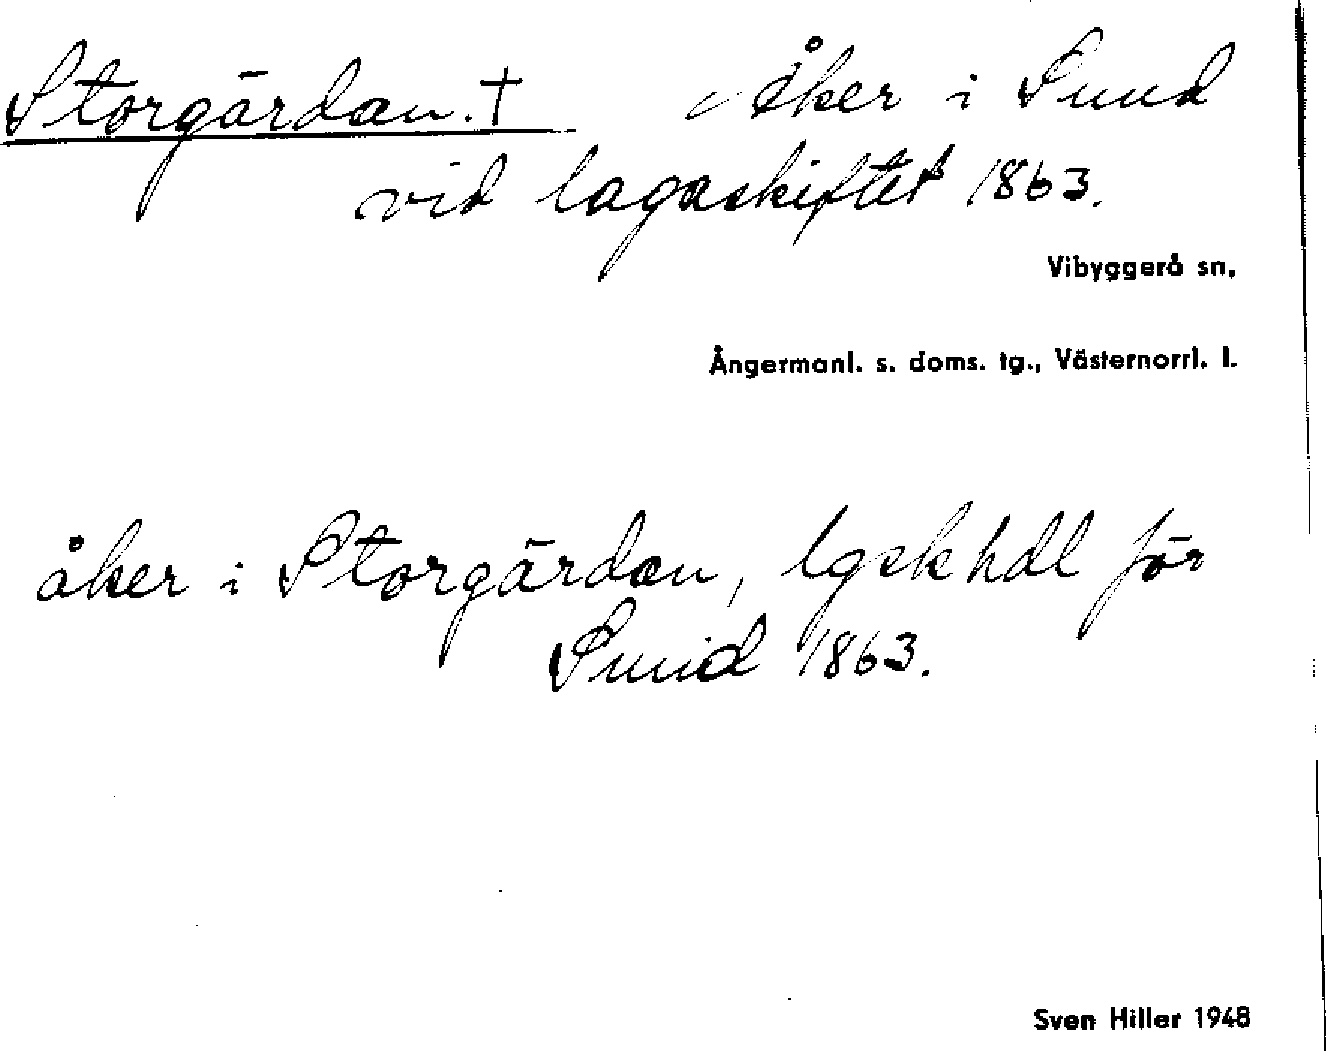 Storgärdan. † åker i Sund
vid lagaskiftet 1863.
Vibyggerå sn,
Ångermanl. s. doms. tg., Västernorrl. l.
åker i Storgärdan, lgskhdl för
Sund 1863.
Sven Hiller 1948